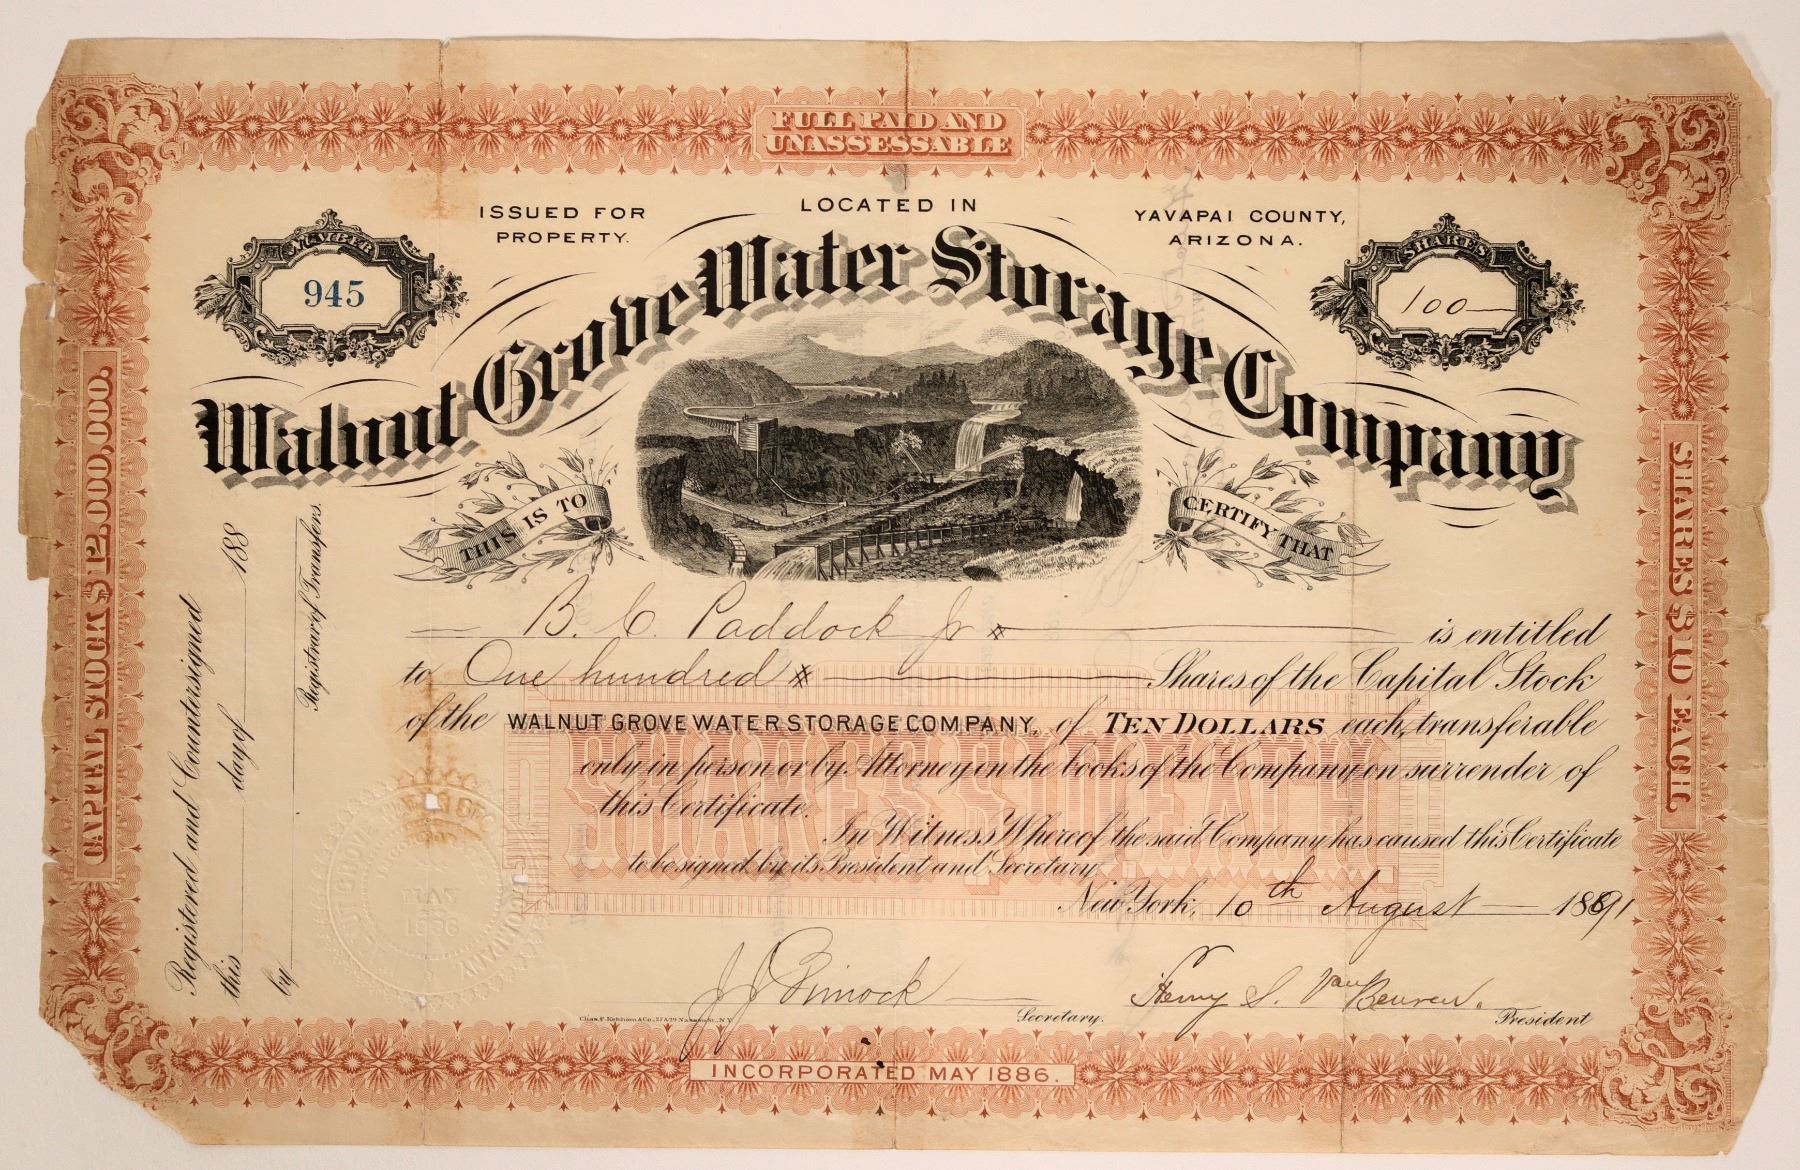 FULL PAID AND
UNASSESSABLE
ISSUED FOR
PROPERTY.
LOCATED IN
YAVAPAI COUNTY,
ARIZONA.
NUMBER
945
SHARES
100
Walnut Grove Water Storage Company
THIS IS TO
CERTIFY THAT
B. C. Paddock Jr is entitled
to One hundred Shares of the Capital Stock
of the WALNUT GROVE WATER STORAGE COMPANY, of TEN DOLLARS each, transferable
only in person or by Attorney on the books of the Company on surrender of
this Certificate.
In Witness Whereof the said Company has caused this Certificate
to be signed by its President and Secretary
New York, 10th August 1891
SHARES $10 EACH
Henry S. Van Beuren.
Secretary.
President
Chas. F. Ketcham & Co., 27 & 29 Nassau St., N.Y.
INCORPORATED MAY 1886.
CAPITAL STOCK $12,000,000.
SHARES $10 EACH
Registered and Countersigned
this day of 188
by
Registrar of Transfers.
MAY
1886
COMPANY